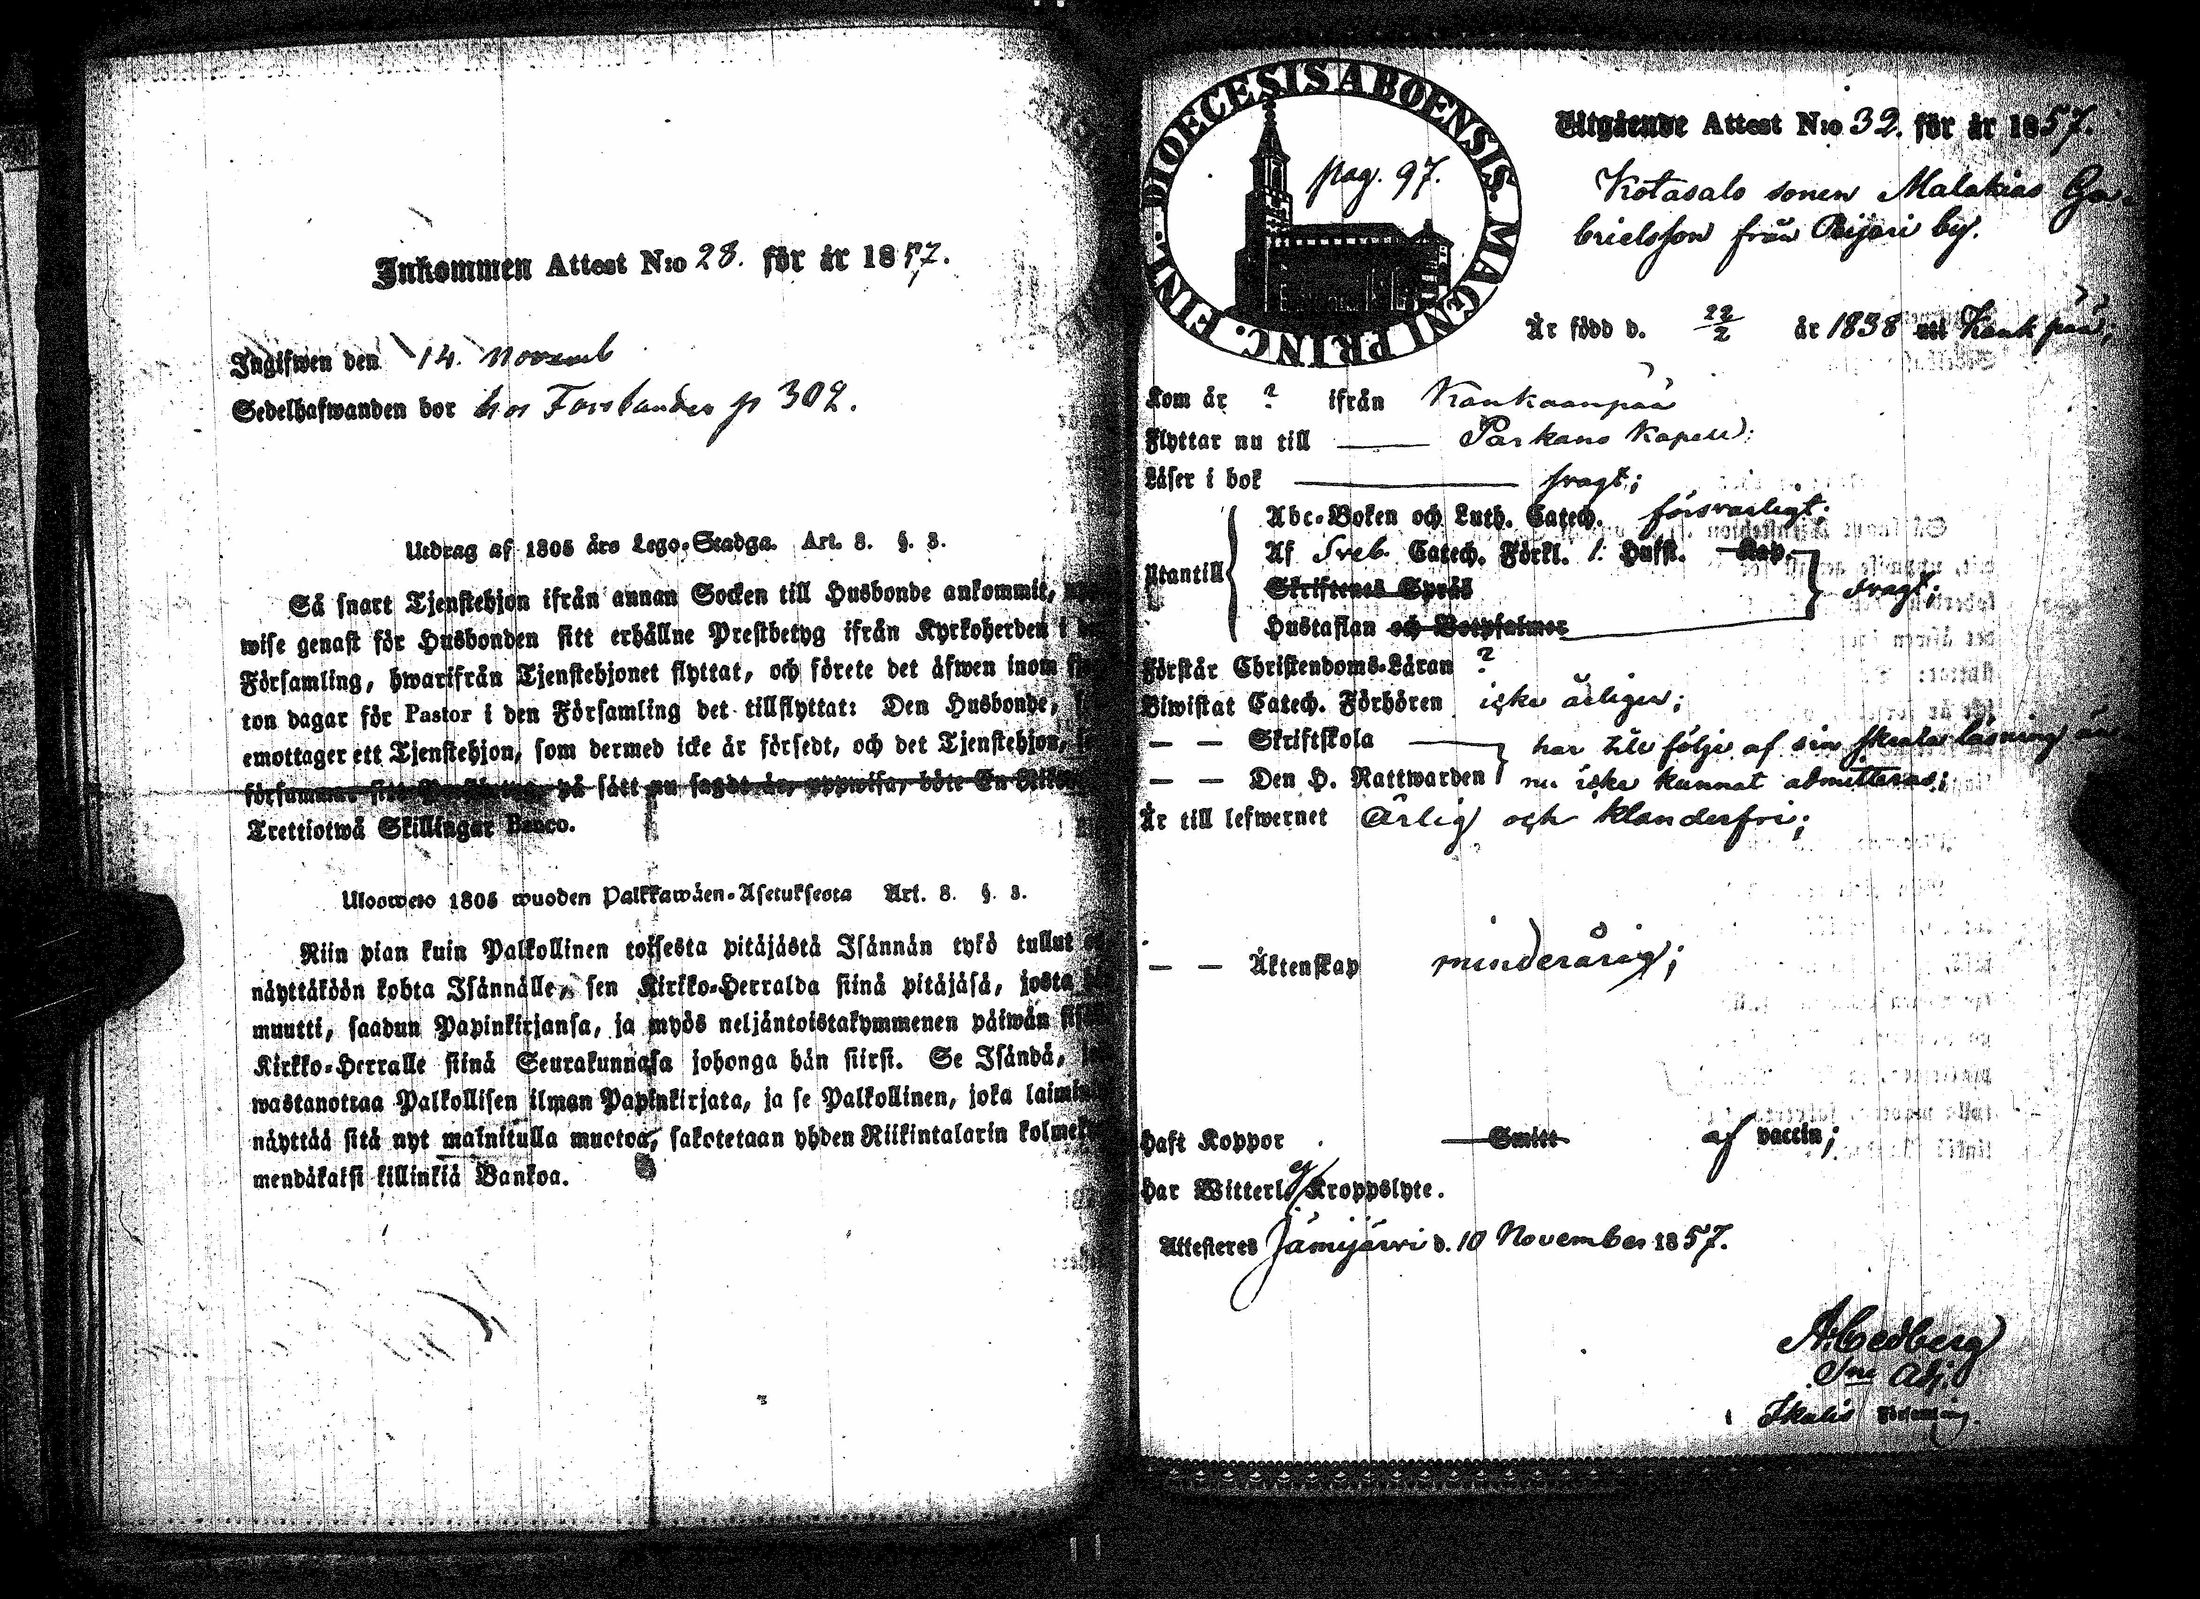 Inkommen Attest N:o 28. för år 1857.
Ingifwen den 14. Novemb
Sedelhafwanden bor hos Forslander p 302.
Utdrag af 1805 års Lego-Stadga. Art. 8. §. 3.
Så snart Tjenstehjon ifrån annan Socken till Husbonde ankommit,
wise genast för Husbonden sitt erhållne Prestbetyg ifrån Kyrkoherden i
Församling, hwarifrån Tjenstehjonet flyttat, och förete det äfwen inom
ton dagar för Pastor i den Församling det tillflyttat: Den Husbonde,
emottager ett Tjenstehjon, som dermed icke är försedt, och det Tjenstehjon,
försummar sitt på sätt nu sagdt är, uppwisa, böte En
Trettiotwå Skillingar Banco.
Ulosweto 1805 wuoden Palkkawäen-Asetuksesta Art. 8. §. 3.
Niin pian kuin Palkollinen toisesta pitäjästä Isännän tykö tullut
näyttäköön kohta Isännälle, sen Kirkko-Herralda siinä pitäjäsä, josta
muutti, saadun Papinkirjansa, ja myös neljäntoistakymmenen päiwän
Kirkko-Herralle siinä Seurakunnasa johonga hän siirsi. Se Isändä,
wastanottaa Palkollisen ilman Papinkirjata, ja se Palkollinen, joka
näyttää sitä nyt mainitulla muotoa, sakotetaan yhden Riikintalarin
mendäkaksi killinkiä Bankoa.
DIOECESIS ABOENSIS. MAGNI PRINC. FINL.
pag. 97.
Utgående Attest N:o 32. för år 1857.
Kotasalo sonen Malakias Ga-
brielsson från Peijari by.
Är född d. 22/2 år 1838 uti Kankpää;
Kom år ? ifrån Kankaanpää
Flyttar nu till Parkano Kapell;
Läser i bok svagt;
Utantill
Abc-Boken och Luth. Catech. försvarligt.
Af Sveb. Catech. Förkl. 1: Hufst. Kap.
Skriftenes Språk
svagt;
Hustaflan och Botpsalmer
Förstår Christendoms-Läran ?
Biwistat Catech. Förhören icke årligen;
— — Skriftskola har till följe af sin läsning än
— — Den H. Nattwarden nu icke kunnat admitteras;
Är till lefwernet Ärlig och klanderfri;
— — Äktenskap minderårig;
Haft Koppor Smitt af vaccin;
Har Witterl. ej Kroppslyte.
Attesteres Jämijärvi d. 10 November 1857.
A. Cedberg
Adj.
i Ikalis Församling.